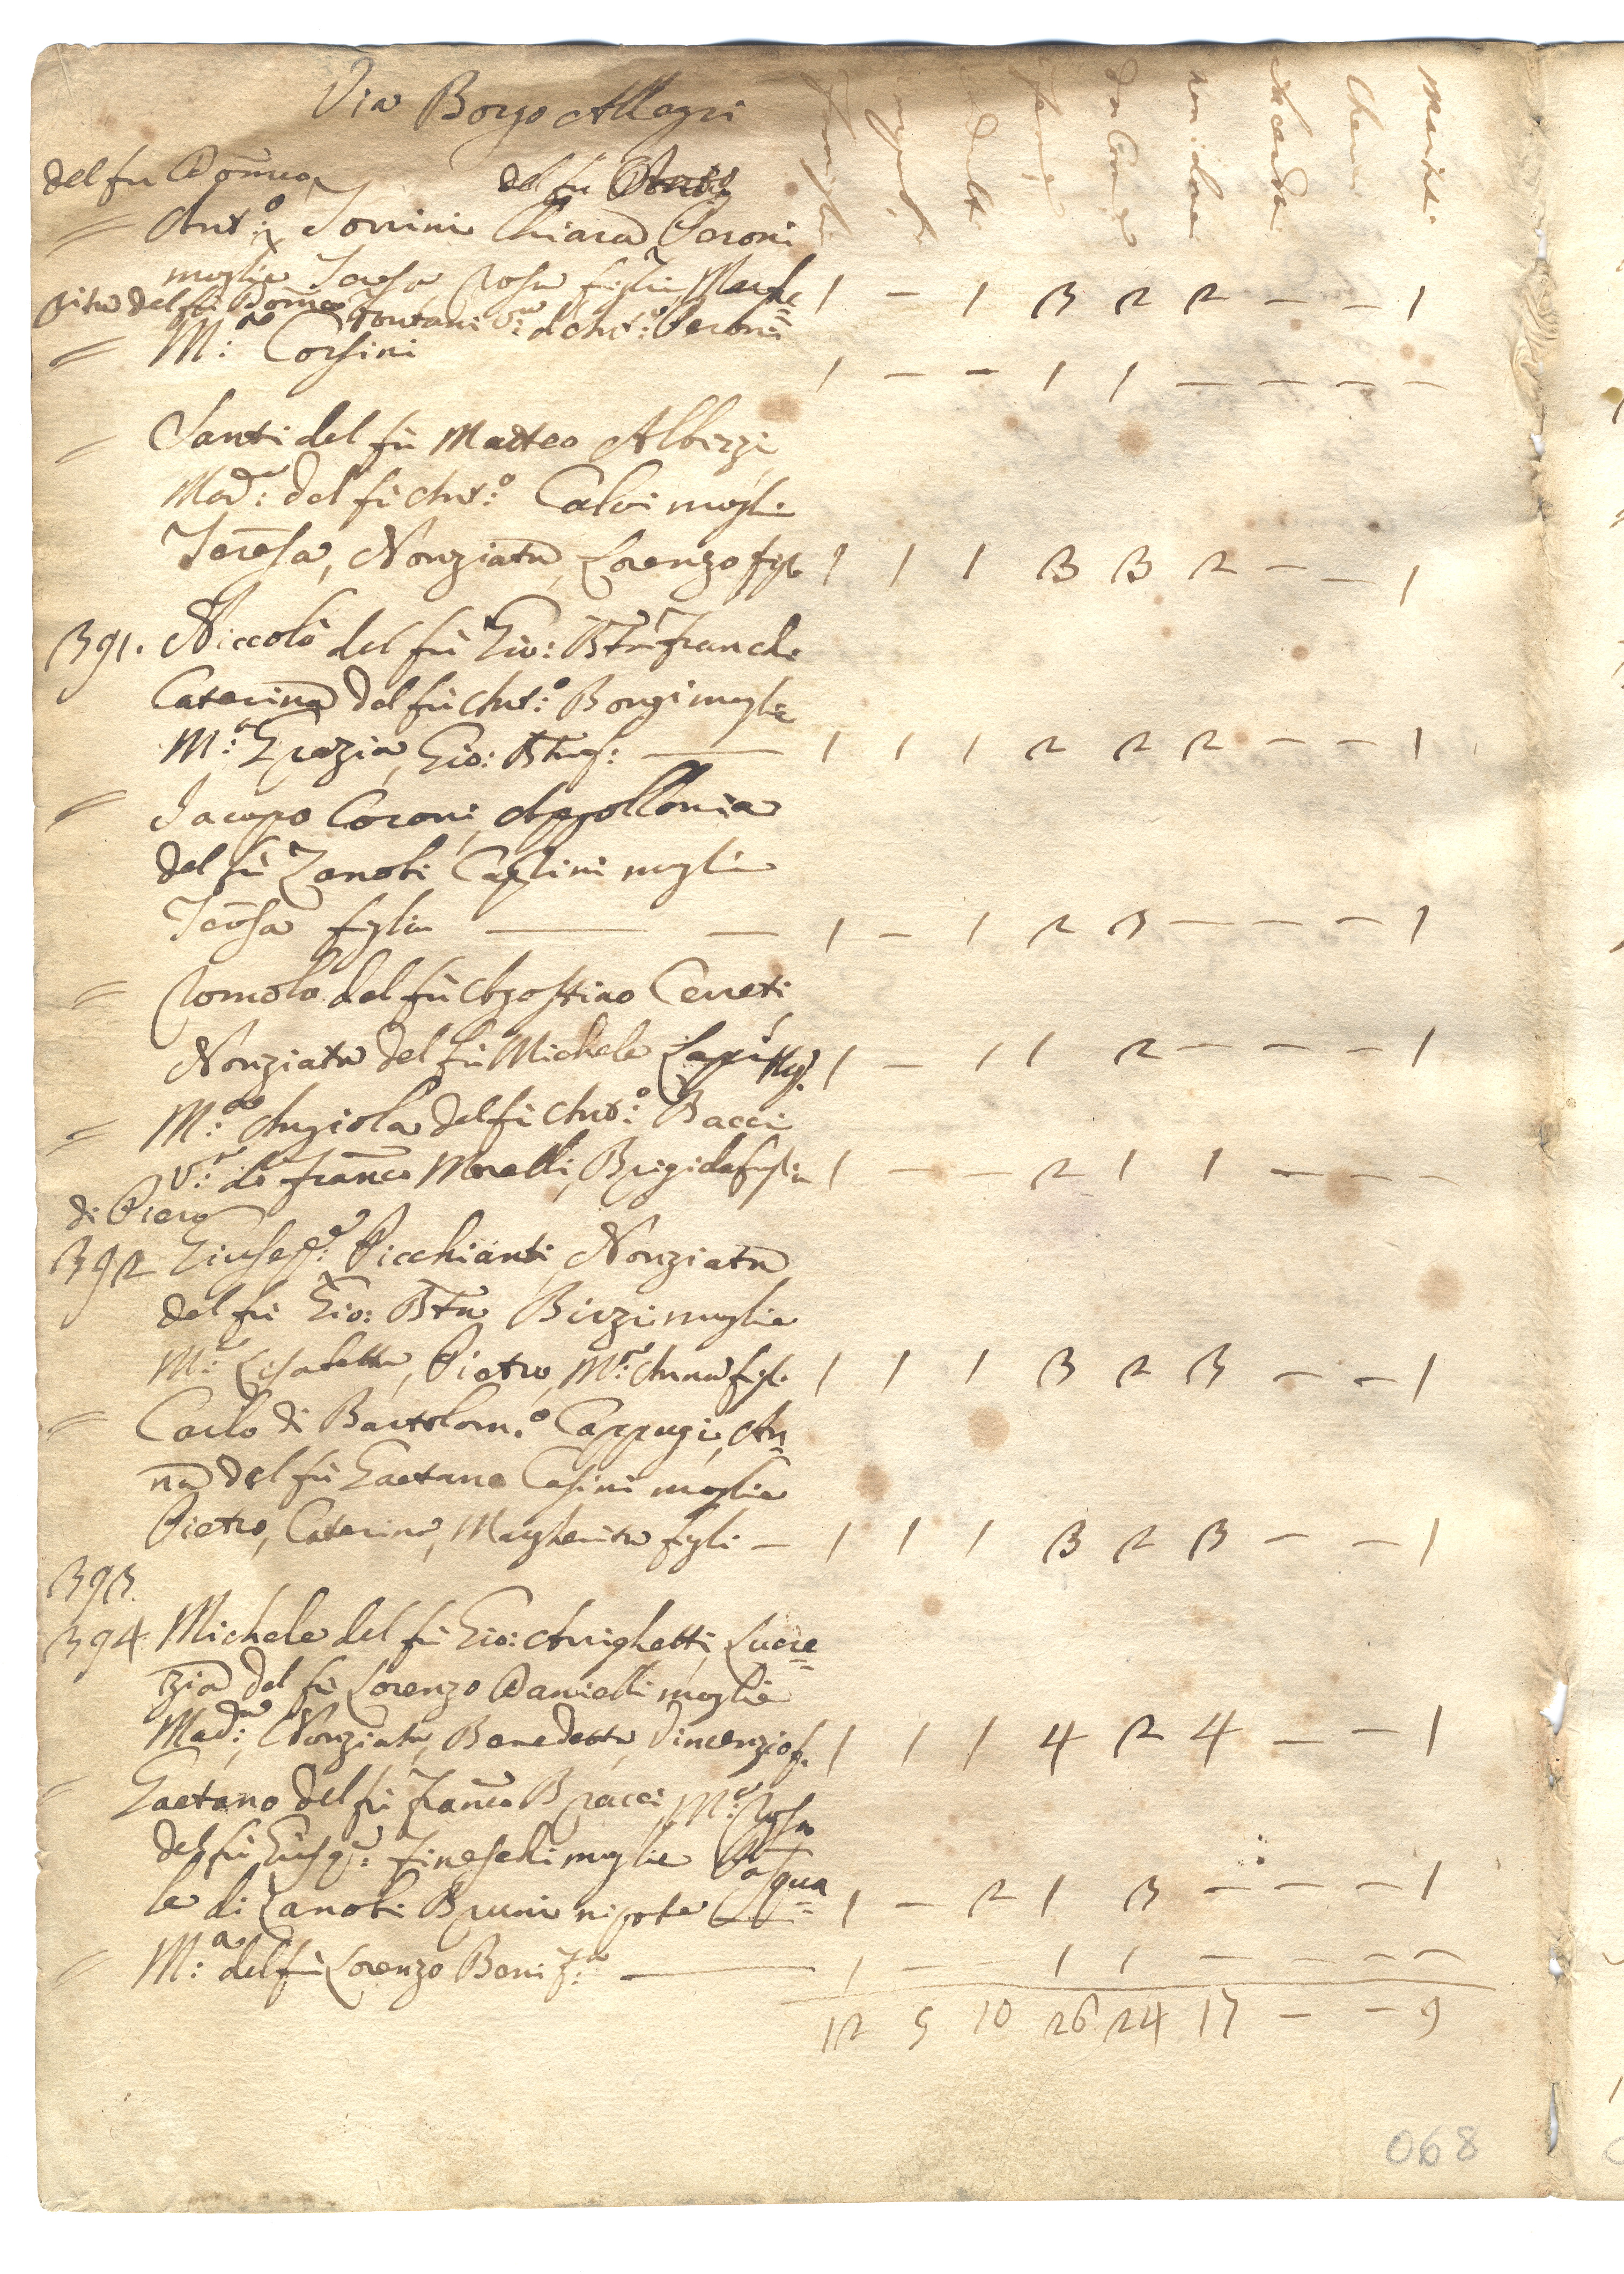 Via Borgo Allegri
del fu Dom.co del fu
= Ant.o Torrini Chiara Peroni
moglie Teresa Rosa figlie Marghe= 1 - 1 3 2 2 - - 1
rita del fu Dom.co Fontani V.a d'Ant.o Peroni
= M.a Corsini 1 - - 1 1 - - - -
= Santi del fu Matteo Albizzi
Mad.a del fu Ant.o Calvi mogl.e
Teresa, Nonziata, Lorenzo figl. 1 1 1 3 3 2 - - 1
391. Niccolò del fu Gio: Bta Franchi
Caterina del fu Ant.o Bongi moglie
M.a Grazia, Gio: Bta f: 1 1 1 2 2 2 - - 1
= Jacopo Coroni, Appollonia
del fu Zanobi Caglini moglie
Teresa figlia 1 - 1 2 3 - - - 1
= Romolo del fu Agostino Cerreti,
Nonziata del fu Michele Lapi Mg. 1 - 1 1 2 - - - 1
= M.a Angiola del fu Ant.o Bacci
V.a di Franco Morelli, Brigida figlia 1 - - 2 1 1 - - -
di Piero
392 Giusep.e Picchianti, Nonziata
del fu Gio: Bta Birzi moglie
M.a Lisabetta, Pietro, M.a Anna figl. 1 1 1 3 2 3 - - 1
= Carlo di Bartolom.o Cappugi, An=
na del fu Gaetano Casini moglie
Pietro, Caterina, Margherita figli - 1 1 1 3 2 3 - - 1
393.
394. Michele del fu Gio: Arrighetti, Lucre=
zia del fu Lorenzo Danielli moglie
Mad.a, Nonziata, Benedetta, Vincenzio f. 1 1 1 4 2 4 - - 1
= Gaetano del fu Franco Bracci, M.a Rosa
del fu Giusep.e Fineschi moglie Pasqua=
le di Zanobi Bruni nipote 1 - 2 1 3 - - - 1
= M.a del fu Lorenzo Boni F.a 1 - 1 1 - - -
12 5 10 26 24 17 - - 9
068